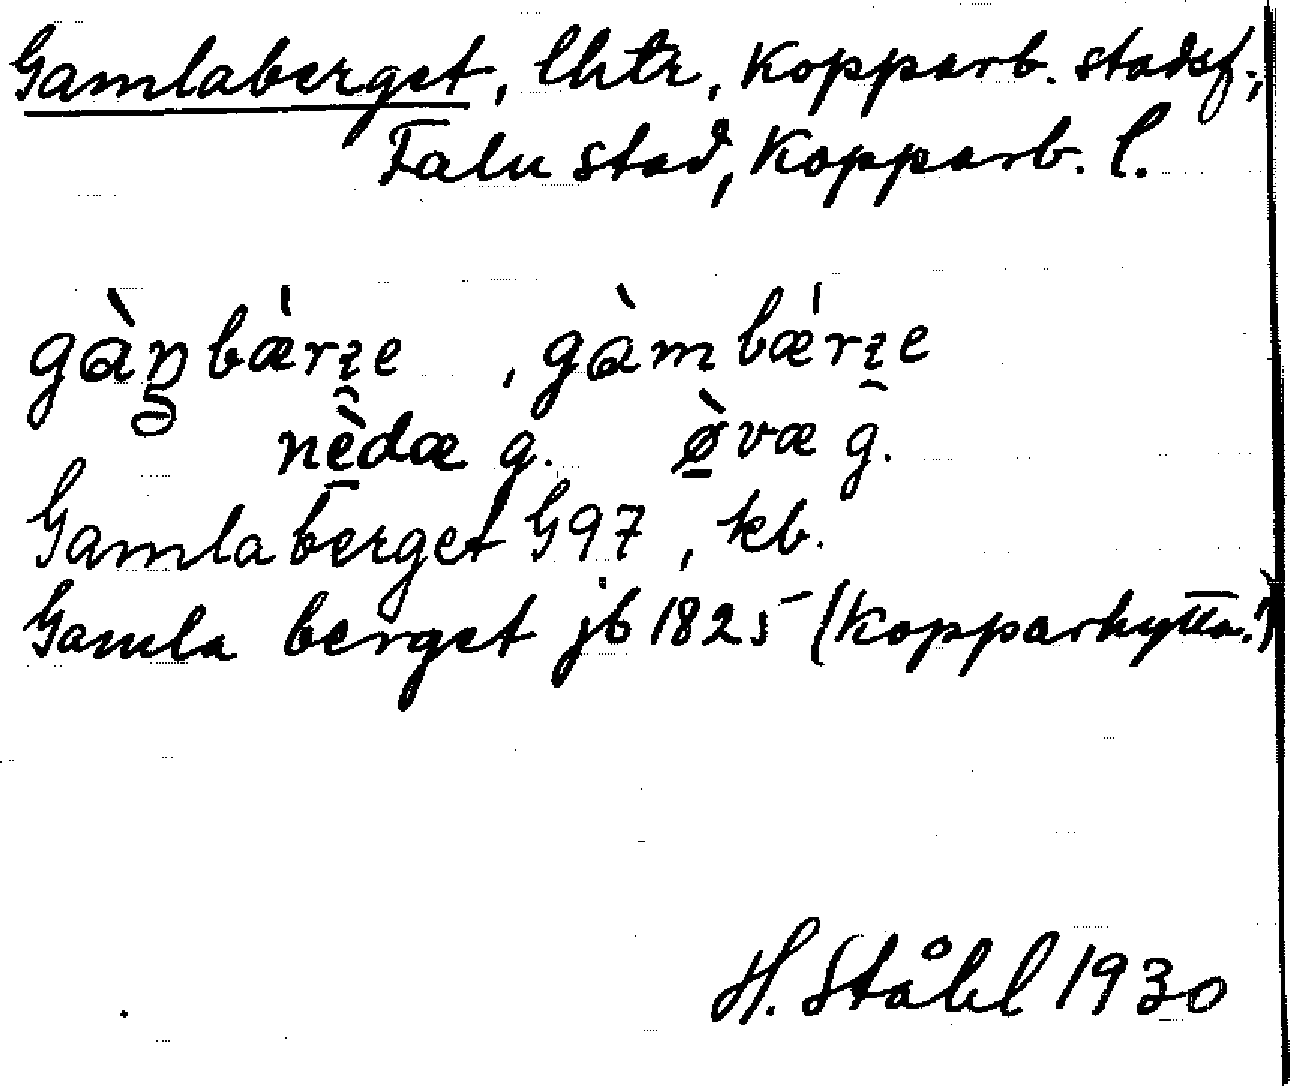 Gamlaberget, lhtr, Kopparb. stadsf.,
Falu stad, Kopparb. l.
gàn̥bǽrʐe, gàmbǽrʐe
nèdæ g. ø̀væ g.
Gamlaberget G97, kb.
Gamla berget jb 1825 (Kopparhyttn.!)
H. Ståhl 1930